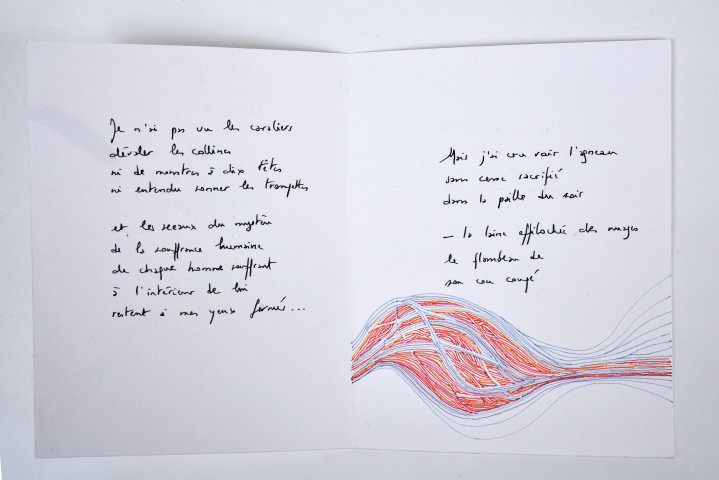 Je n'ai pas vu les cavaliers
dévaler les collines
ni de monstres à dix têtes
ni entendu sonner les trompettes
et les sceaux du mystère
de la souffrance humaine
de chaque homme souffrant
à l'intérieur de lui
restent à mes yeux fermés...
Mais j'ai cru voir l'agneau
sans cesse sacrifié
dans la paille du soir
– la laine effilochée des nuages
le flambeau de
son cou coupé